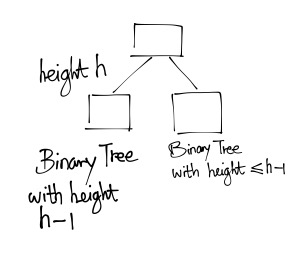 height h
Binary Tree
with height
h-1
Binary Tree
with height ≤h-1